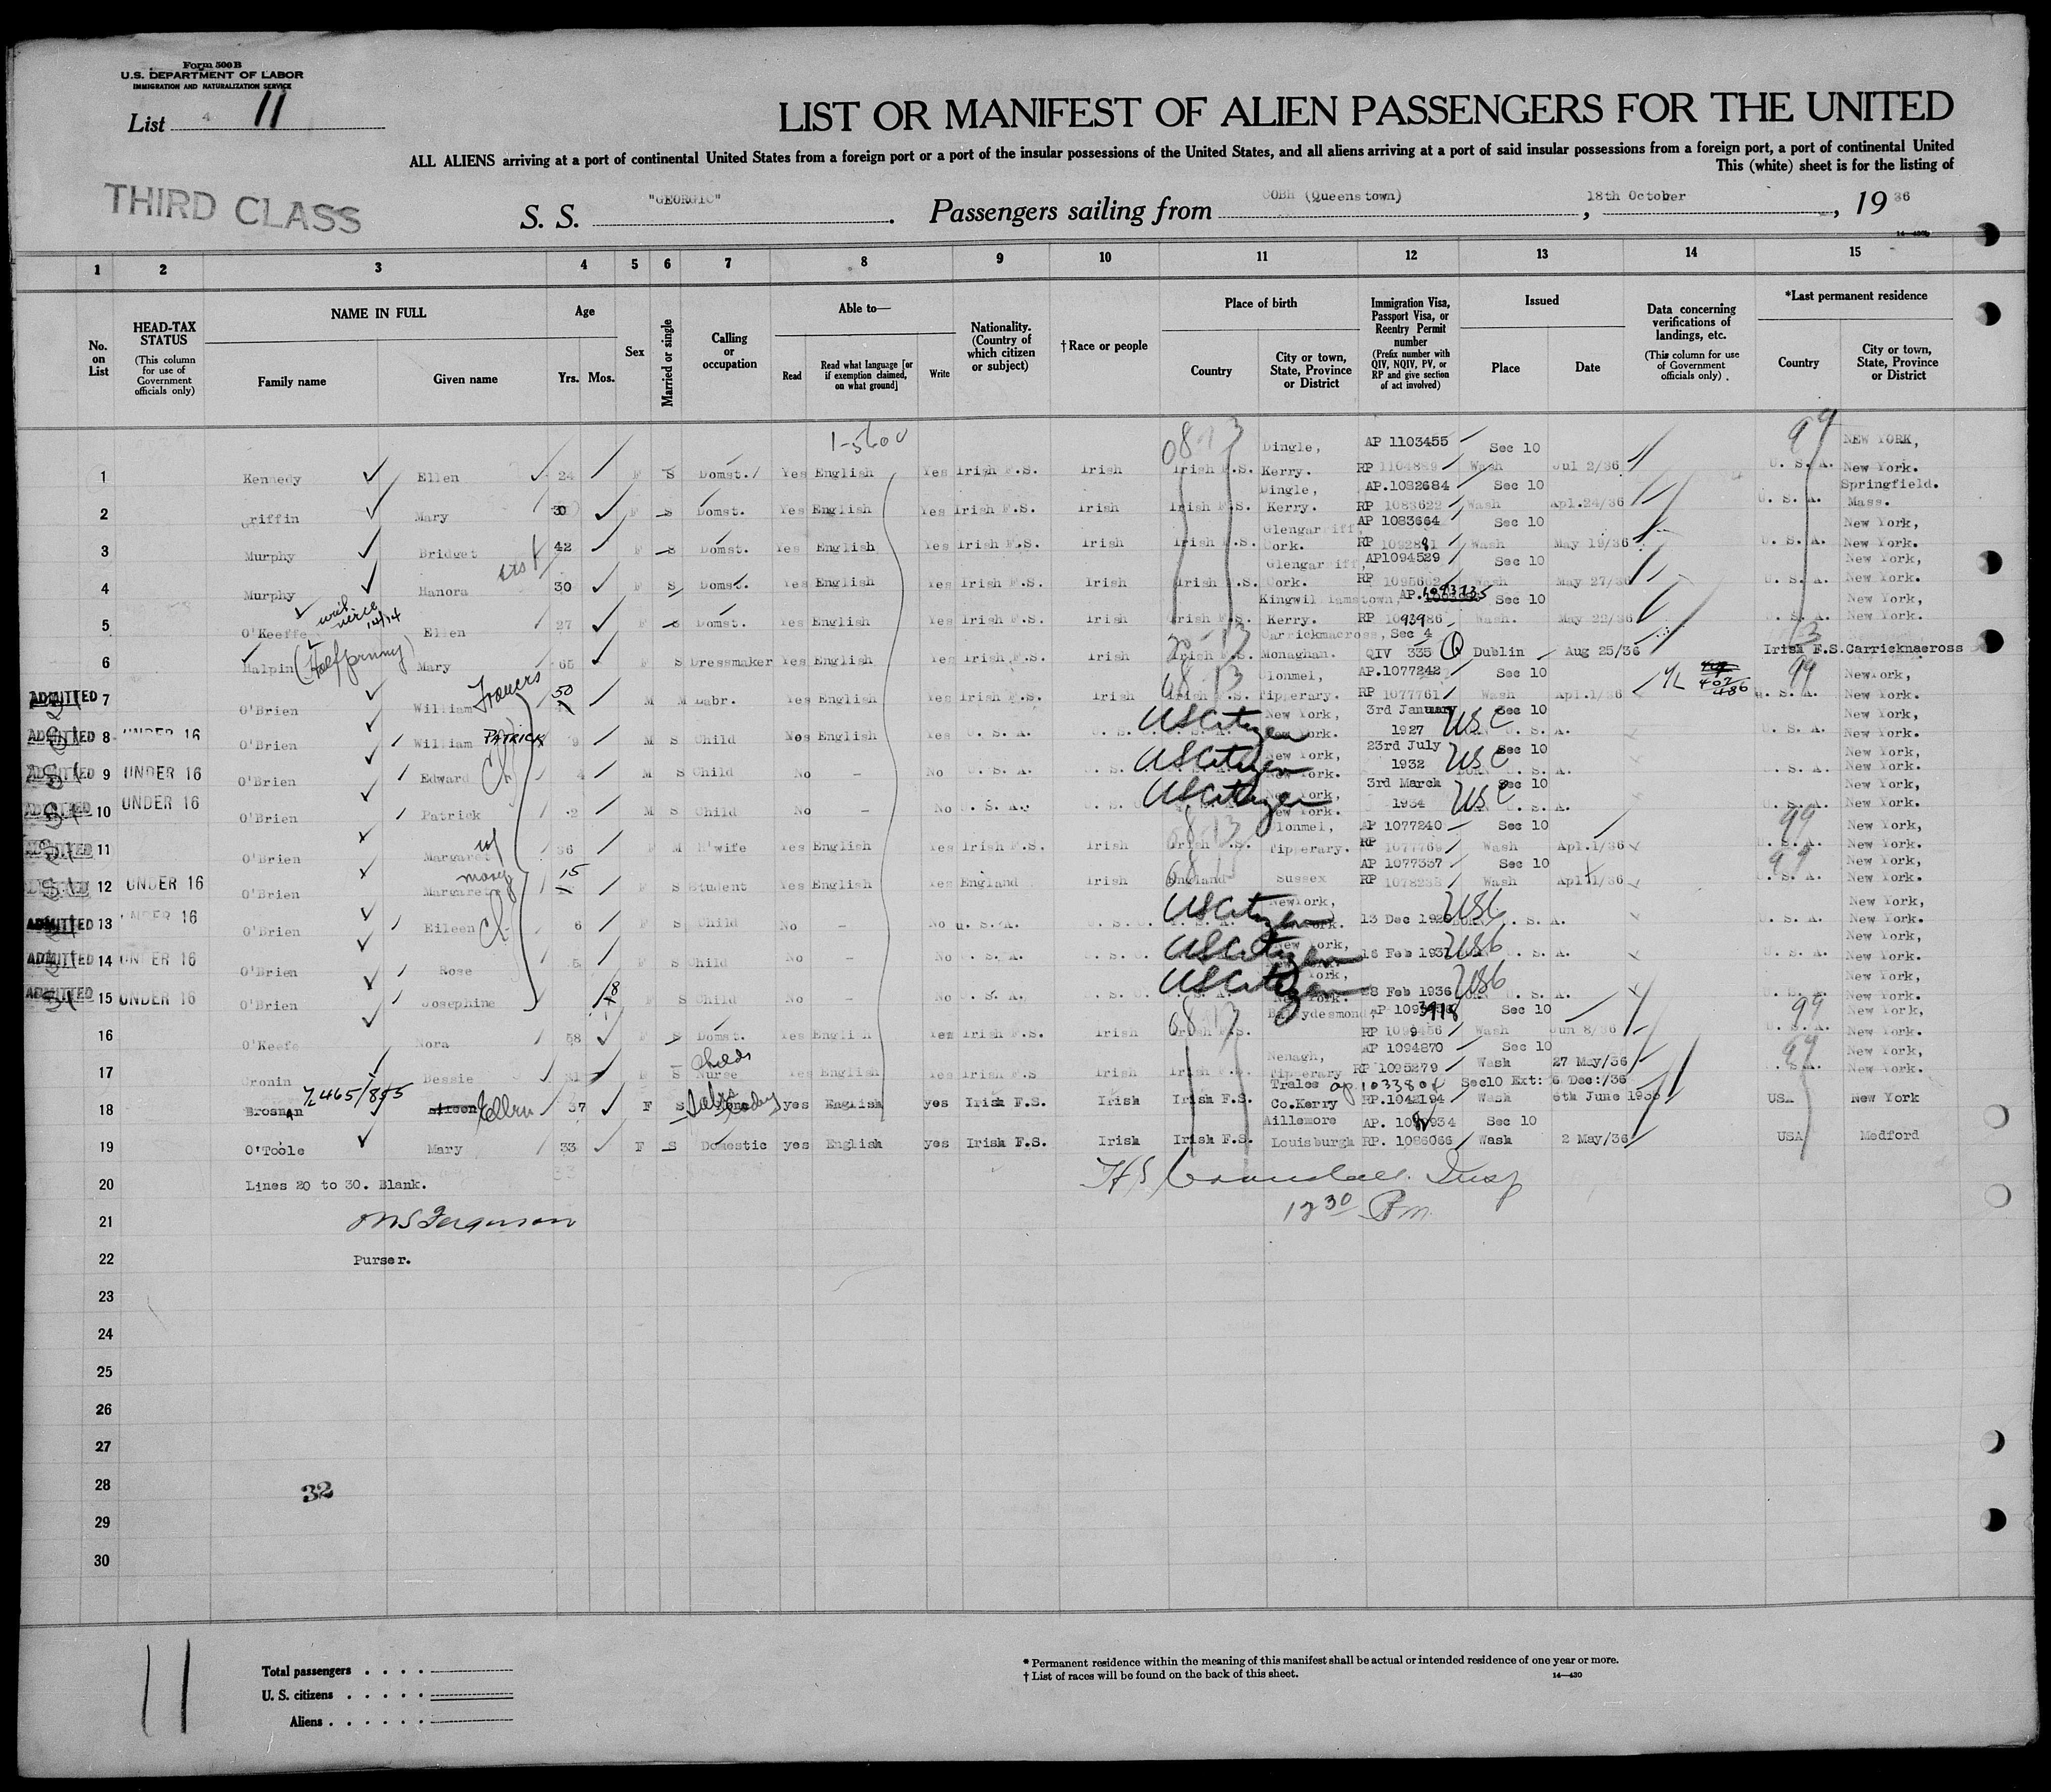 Form 500 B
U.S. DEPARTMENT OF LABOR
IMMIGRATION AND NATURALIZATION SERVICE
List 4 11
LIST OR MANIFEST OF ALIEN PASSENGERS FOR THE UNITED
ALL ALIENS arriving at a port of continental United States from a foreign port or a port of the insular possessions of the United States, and all aliens arriving at a port of said insular possessions from a foreign port, a port of continental United
This (white) sheet is for the listing of
THIRD CLASS
S. S. "GEORGIC". Passengers sailing from COBH (Queenstown), 18th October, 1936
1 2 3 4 5 6 7 8 9 10 11 12 13 14 15
No. on List
HEAD-TAX STATUS (This column for use of Government officials only)
NAME IN FULL Family name Given name
Age Yrs. Mos.
Sex
Married or single
Calling or occupation
Able to— Read Read what language [or if exemption claimed, on what ground] Write
Nationality. (Country of which citizen or subject)
†Race or people
Place of birth Country City or town, State, Province or District
Immigration Visa, Passport Visa, or Reentry Permit number (Prefix number with QIV, NQIV, PV, or RP and give section of act involved)
Issued Place Date
Data concerning verifications of landings, etc. (This column for use of Government officials only)
*Last permanent residence Country City or town, State, Province or District
Dingle, AP 1103455 Sec 10 NEW YORK,
1 Kennedy Ellen 24 F S Domst. Yes English Yes Irish F.S. Irish Irish F.S. Kerry. RP Wash Jul 2/36 U. S. A. New York.
Dingle, AP.1082684 Sec 10 Springfield.
2 Griffin Mary 30 F S Domst. Yes English Yes Irish F.S. Irish Irish F.S. Kerry. RP 1083622 Wash Apl.24/36 U. S. A. Mass.
Glengarriff AP 1083664 Sec 10 New York,
3 Murphy Bridget 42 F S Domst. Yes English Yes Irish F.S. Irish Irish F.S. Cork. RP Wash May 19/36 U. S. A. New York.
Glengarriff, AP1094529 Sec 10 New York,
4 Murphy Hanora 30 F S Domst. Yes English Yes Irish F.S. Irish Irish F.S. Cork. RP 1095602 Wash May 27/36 U. S. A. New York.
Kingwilliamstown, AP. Sec 10 New York,
5 O'Keeffe Ellen 27 F S Domst. Yes English Yes Irish F.S. Irish Irish F.S. Kerry. RP 1093986 Wash. May 22/36 U. S. A. New York.
Carrickmacross, Sec 4
6 Halpin (Halfpenny) Mary 65 F S Dressmaker Yes English Yes Irish F.S. Irish Irish F.S. Monaghan. QIV 335 Dublin Aug 25/36 Irish F.S. Carricknacross
Clonmel, AP.1077242 Sec 10 New York,
ADMITTED 7 O'Brien William 50 M M Labr. Yes English Yes Irish F.S. Irish Irish F.S. Tipperary. RP 1077761 Wash Apl.1/36 U. S. A. New York.
New York, 3rd January Sec 10 New York,
ADMITTED 8 UNDER 16 O'Brien William PATRICK 9 M S Child English Yes U. S. A. US Citizen New York. 1927 USC U. S. A. New York.
New York, 23rd July Sec 10 New York,
ADMITTED 9 UNDER 16 O'Brien Edward 4 M S Child No - No U. S. A. US Citizen New York. 1932 USC U. S. A. New York.
New York, 3rd March Sec 10 New York,
ADMITTED 10 UNDER 16 O'Brien Patrick 2 M S Child No - No U. S. A. US Citizen New York. 1934 USC U. S. A. New York.
Clonmel, AP 1077240 Sec 10 New York,
ADMITTED 11 O'Brien Margaret 36 F M H'wife Yes English Yes Irish F.S. Irish Irish F.S. Tipperary. RP 1077769 Wash Apl.1/36 U. S. A. New York.
AP 1077337 Sec 10 New York,
ADMITTED 12 UNDER 16 O'Brien Margaret Mary 15 F S Student Yes English Yes England Irish England Sussex RP Wash Apl 1/36 U. S. A. New York.
New York, New York,
ADMITTED 13 UNDER 16 O'Brien Eileen 6 F S Child No - No U. S. A. US Citizen 13 Dec USC U. S. A. New York.
New York, New York,
ADMITTED 14 UNDER 16 O'Brien Rose 5 F S Child No - No U. S. A. US Citizen 16 Feb USC U. S. A. New York.
New York, New York,
ADMITTED 15 UNDER 16 O'Brien Josephine 8 F S Child No - No U. S. A. US Citizen New York. 28 Feb 1936 USC U. S. A. New York.
AP Sec 10 New York,
16 O'Keefe Nora 58 F S Domst. Yes English Yes Irish F.S. Irish Irish F.S. RP Wash Jun 8/36 U. S. A. New York.
Childs Nenagh, AP 1094870 Sec 10 New York,
17 Cronin Bessie 31 F S Nurse Yes English Yes Irish F.S Irish Irish F.S. Tipperary RP 1095279 Wash 27 May/36 U. S. A. New York.
Tralee Sec10 Ext: 6 Dec:/36
18 Brosnan Ellen 37 F S yes English yes Irish F.S. Irish Irish F.S. Co.Kerry RP.1042194 Wash 6th June USA New York
Aillemore AP. Sec 10
19 O'Toole Mary 33 F S Domestic yes English yes Irish F.S. Irish Irish F.S. Louisburgh RP. 1086066 Wash 2 May/36 USA Medford
20 Lines 20 to 30. Blank.
12 30 Pm
21 Ferguson
22 Purser.
23
24
25
26
27
28 32
29
30
11
Total passengers
U. S. citizens
Aliens
* Permanent residence within the meaning of this manifest shall be actual or intended residence of one year or more.
† List of races will be found on the back of this sheet. 14—430